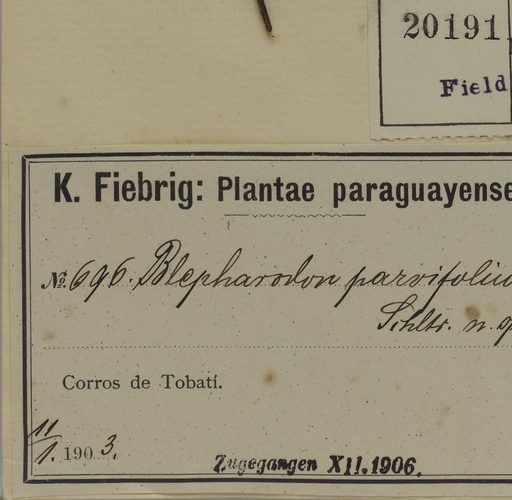 20191
Field
K. Fiebrig: Plantae paraguayense
№. 696. Blepharodon parvifoliu
Schltr. n. sp
Corros de Tobatí.
11/1. 1903.
Zugegangen XII. 1906.